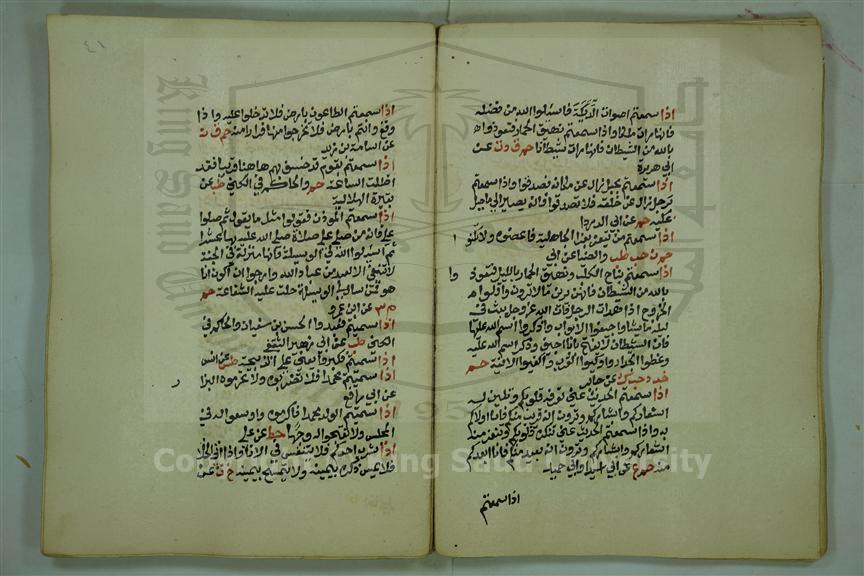 اذا سمعتم اصوات الديكة فاسئلوا الله من فضله
فانها رات ملكا واذا سمعتم نهيق الحمار فتعوذوا
بالله من الشيطان فانها رات شيطانا حم ق د ت عن
ابي هريرة
اذا سمعتم بجبل زال عن مكانه فصدقوا واذا سمعتم
برجل زال عن خلقه فلا تصدقوا فانه يصير الى ما جبل
عليه حم عن ابي الدردا
اذا سمعتم من يتعزى بعزا الجاهلية فاعضوه ولا تكنوا
حم ن حب طب والضيا عن ابي
اذا سمعتم نباح الكلب ونهيق الحمار بالليل فتعوذوا
بالله من الشيطان فانهن يرين ما لا ترون واقلوا
الخروج اذا هدات الرجل فان الله عز وجل يبث في
ليله من خلقه ما يشا واجيفوا الابواب واذكروا اسم الله عليها
فان الشيطان لا يفتح بابا اجيف وذكر اسم الله عليه
وغطوا الجرار واوكئوا القرب واكفئوا الانية حم
خد د حب ك عن جابر
اذا سمعتم الحديث عني تعرفه قلوبكم وتلين له
اشعاركم وابشاركم وترون انه قريب منكم فانا اولاكم
به واذا سمعتم الحديث عني تنكره قلوبكم وتنفر منه
اشعاركم وابشاركم وترون انه بعيد منكم فانا ابعدكم
منه حم ع عن ابي اسيد وابي حميد
اذا سمعتم
٤١
اذا سمعتم الطاعون بارض فلا تدخلوا عليه واذا
وقع وانتم بارض فلا تخرجوا منها فرارا منه حم ق ت
عن اسامة بن زيد
اذا سمعتم بقوم قد خسف بهم هاهنا قريبا فقد
اظلت الساعة حم والحاكم في الكنى طب عن
بقيرة الهلالية
اذا سمعتم الموذن فقولوا مثل ما يقول ثم صلوا
علي فانه من صلى علي صلاة صلى الله عليه بها عشرا
ثم اسئلوا الله لي الوسيلة فانها منزلة في الجنة
لا تنبغي الا لعبد من عباد الله وارجوا ان اكون انا
هو فمن سال لي الوسيلة حلت عليه الشفاعة حم
م ٣ عن ابن عمرو
اذا سميتم فعبدوا الحسن بن سفيان والحاكم في
الكنى طب عن ابي زهير الثقفي
اذا سميتم فكبروا يعني على الذبيحة طس عن انس
اذا سميتم محمدا فلا تضربوه ولا تحرموه البزار
عن ابي رافع
اذا سميتم الولد محمدا فاكرموه واوسعوا له في
المجلس ولا تقبحوا له وجها خط عن علي
اذا شرب احدكم فلا يتنفس في الانا واذا اتى الخلا
فلا يمس ذكره بيمينه ولا يتمسح بيمينه خ ت عن